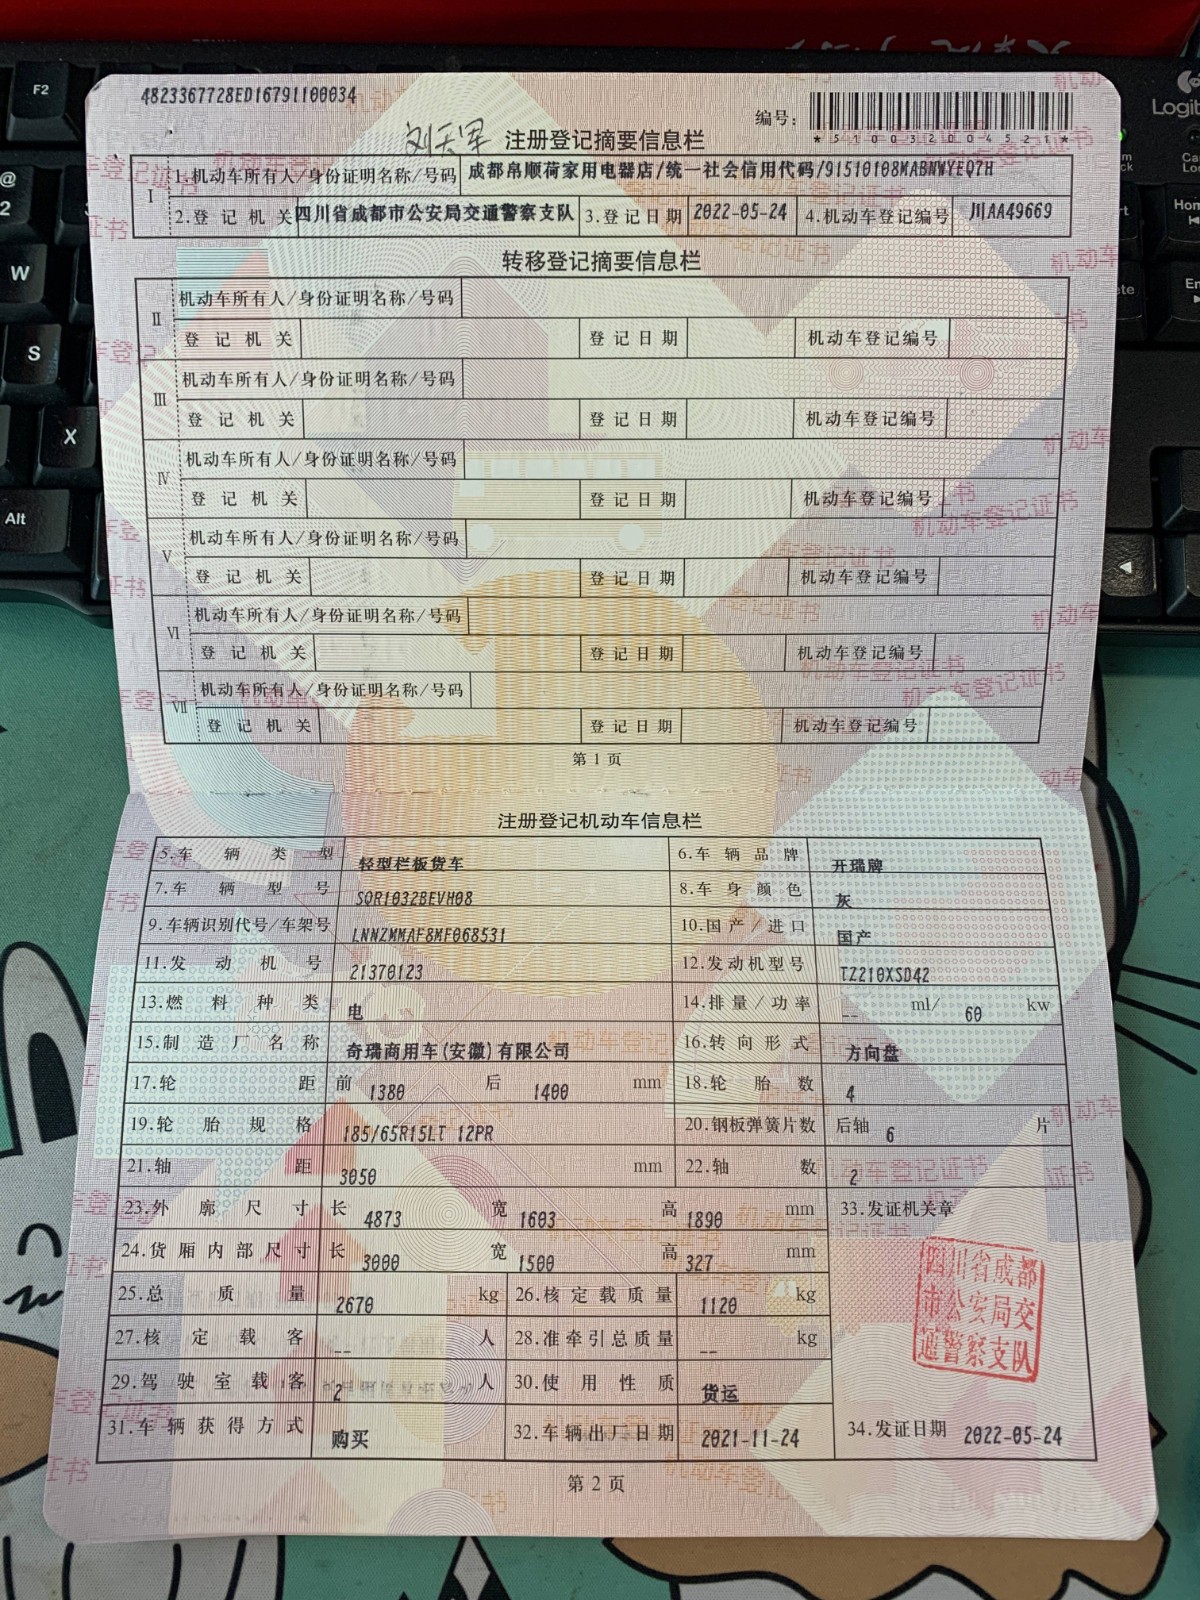 4823367728ED16791100034
编号：
*510032004521*
刘天军 注册登记摘要信息栏
Ⅰ 1.机动车所有人/身份证明名称/号码 成都帛顺荷家用电器店/统一社会信用代码/91510108MABNWYEQ7H
2.登记机关 四川省成都市公安局交通警察支队 3.登记日期 2022-05-24 4.机动车登记编号 川AA49669
转移登记摘要信息栏
Ⅱ 机动车所有人/身份证明名称/号码
登记机关 登记日期 机动车登记编号
Ⅲ 机动车所有人/身份证明名称/号码
登记机关 登记日期 机动车登记编号
Ⅳ 机动车所有人/身份证明名称/号码
登记机关 登记日期 机动车登记编号
Ⅴ 机动车所有人/身份证明名称/号码
登记机关 登记日期 机动车登记编号
Ⅵ 机动车所有人/身份证明名称/号码
登记机关 登记日期 机动车登记编号
Ⅶ 机动车所有人/身份证明名称/号码
登记机关 登记日期 机动车登记编号
第 1 页
注册登记机动车信息栏
5.车辆类型 轻型栏板货车 6.车辆品牌 开瑞牌
7.车辆型号 SQR1032BEVH08 8.车身颜色 灰
9.车辆识别代号/车架号 LNNZMMAF8MF068531 10.国产/进口 国产
11.发动机号 21370123 12.发动机型号 TZ210XSD42
13.燃料种类 电 14.排量/功率 -- ml/ 60 kw
15.制造厂名称 奇瑞商用车(安徽)有限公司 16.转向形式 方向盘
17.轮距 前 1380 后 1400 mm 18.轮胎数 4
19.轮胎规格 185/65R15LT 12PR 20.钢板弹簧片数 后轴 6 片
21.轴距 3050 mm 22.轴数 2
23.外廓尺寸 长 4873 宽 1603 高 1890 mm 33.发证机关章
24.货厢内部尺寸 长 3000 宽 1500 高 327 mm
四川省成都
市公安局交
通警察支队
25.总质量 2670 kg 26.核定载质量 1120 kg
27.核定载客 -- 人 28.准牵引总质量 -- kg
29.驾驶室载客 2 人 30.使用性质 货运
31.车辆获得方式 购买 32.车辆出厂日期 2021-11-24 34.发证日期 2022-05-24
第 2 页
F2
@
2
W
S
X
Alt